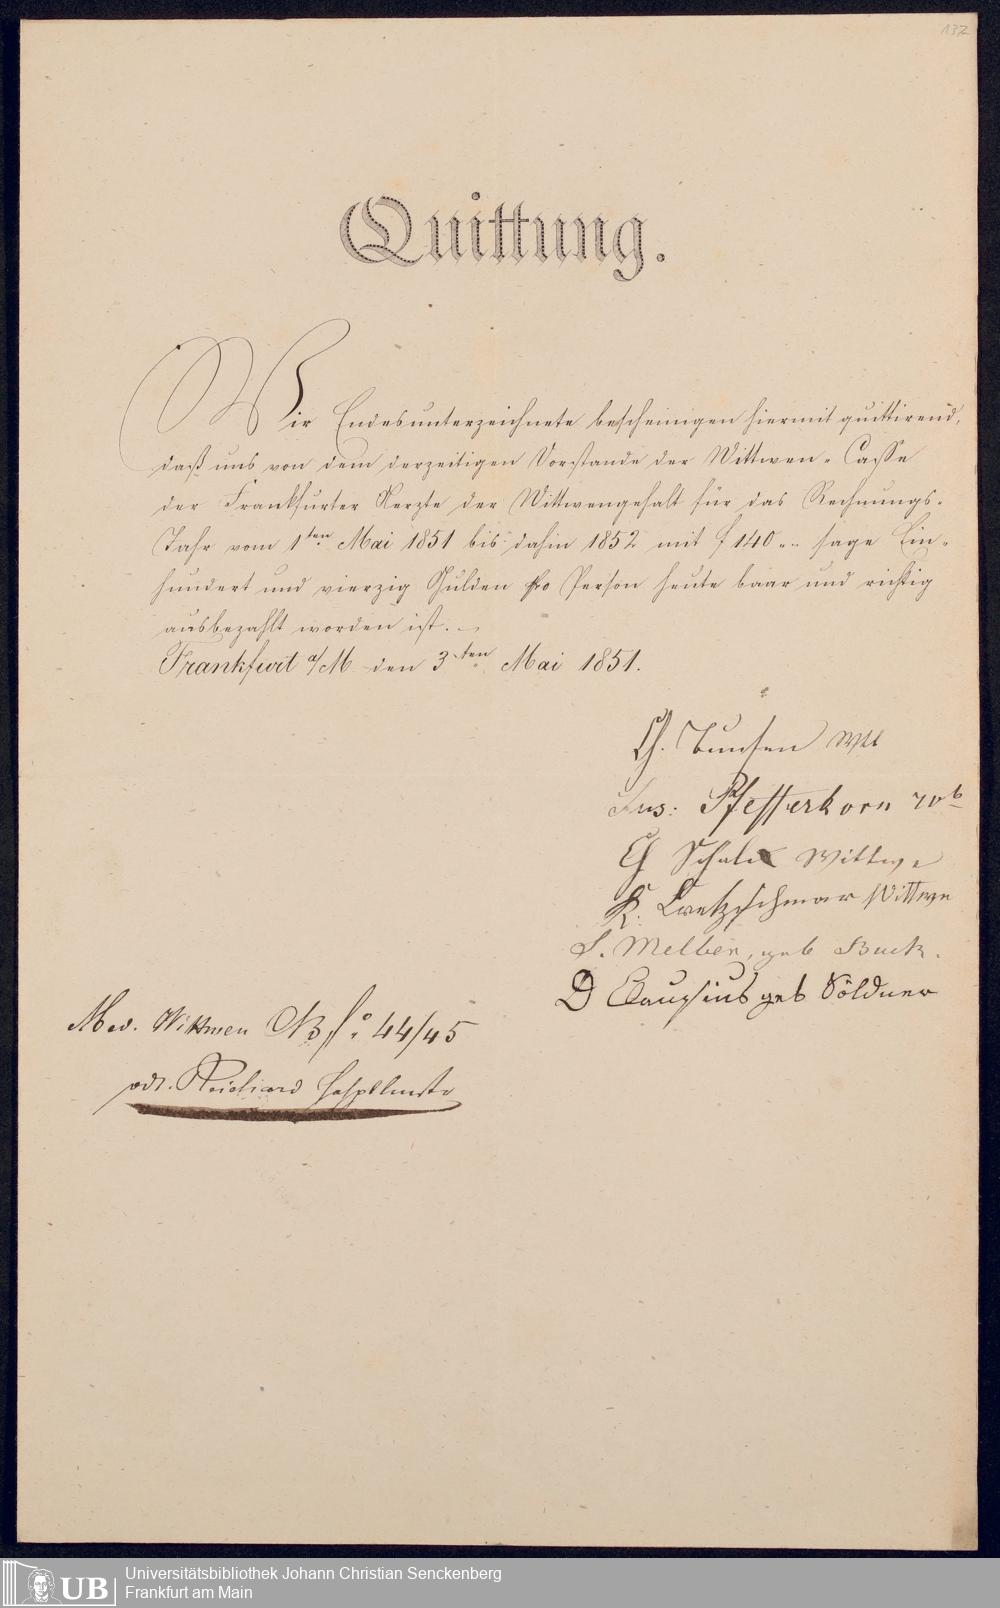 137
Quittung.
Wir Endesunterzeichnete bescheinigen hiermit quittirend,
daß uns von dem derzeitigen Vorstande der Wittwen-Casse
der Frankfurter Aerzte der Wittwengehalt für das Rechnungs-
Jahr vom 1ten Mai 1851 bis dahin 1852 mit f 140 „ „ sage Ein-
hundert und vierzig Gulden pro Person heute baar und richtig
ausbezahlt worden ist. –
Frankfurt a/M den 3ten Mai 1851.
Ch. Bunsen Wtt
Sus: Pfefferkorn
Ch Schalk Wittwe
K. Kretzschmar Wittwe
S. Melber, geb Buck.
D Clausius geb Söldner
Med. Wittwen fo 44/45
vdt. Reichard
UB Universitätsbibliothek Johann Christian Senckenberg
Frankfurt am Main